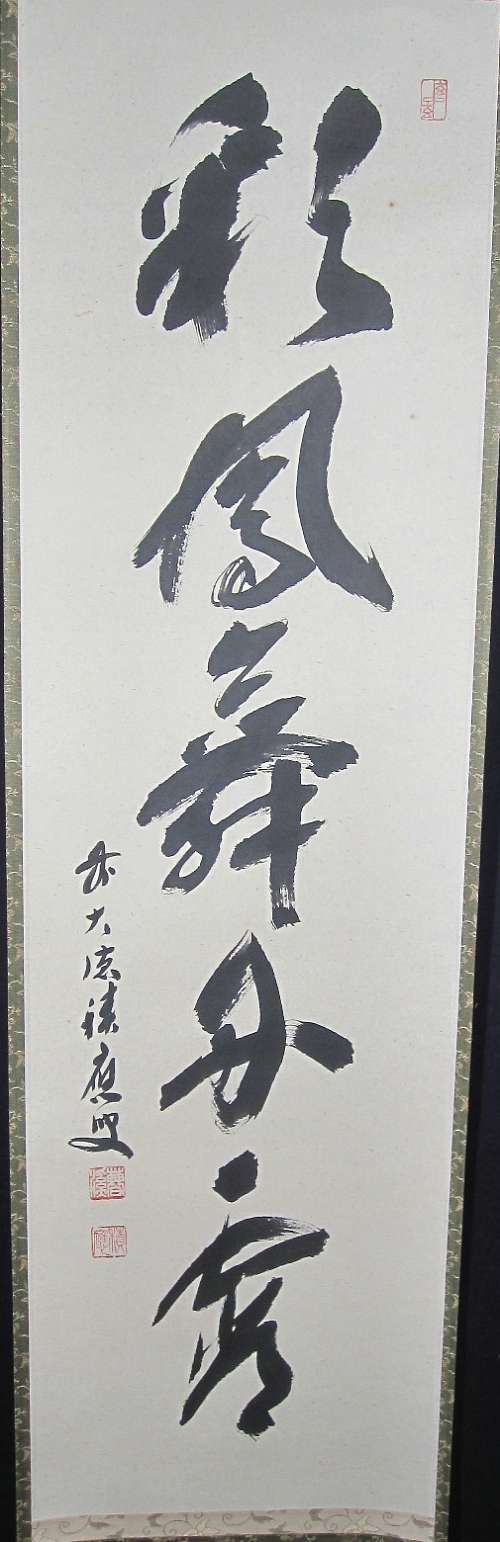 彩鳳舞丹霄
前大徳積應叟